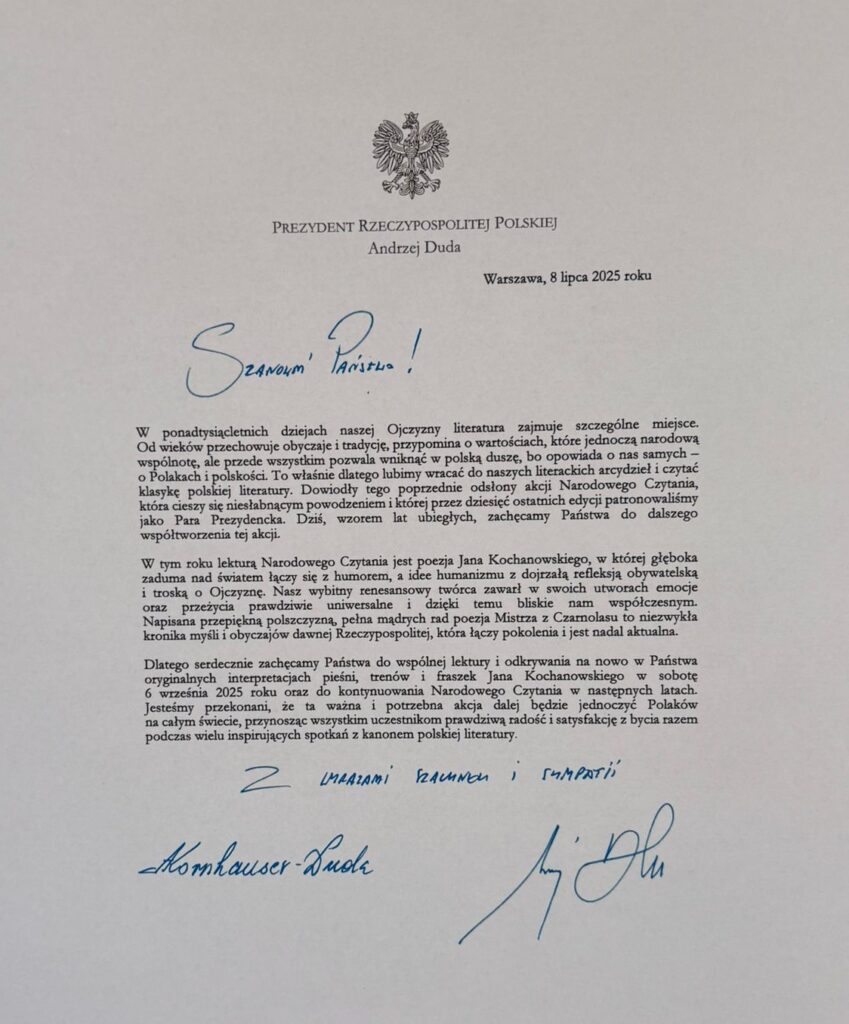 PREZYDENT RZECZYPOSPOLITEJ POLSKIEJ
Andrzej Duda
Warszawa, 8 lipca 2025 roku
Szanowni Państwo!
W ponadtysiącletnich dziejach naszej Ojczyzny literatura zajmuje szczególne miejsce.
Od wieków przechowuje obyczaje i tradycję, przypomina o wartościach, które jednoczą narodową
wspólnotę, ale przede wszystkim pozwala wniknąć w polską duszę, bo opowiada o nas samych –
o Polakach i polskości. To właśnie dlatego lubimy wracać do naszych literackich arcydzieł i czytać
klasykę polskiej literatury. Dowiodły tego poprzednie odsłony akcji Narodowego Czytania,
która cieszy się niesłabnącym powodzeniem i której przez dziesięć ostatnich edycji patronowaliśmy
jako Para Prezydencka. Dziś, wzorem lat ubiegłych, zachęcamy Państwa do dalszego
współtworzenia tej akcji.
W tym roku lekturą Narodowego Czytania jest poezja Jana Kochanowskiego, w której głęboka
zaduma nad światem łączy się z humorem, a idee humanizmu z dojrzałą refleksją obywatelską
i troską o Ojczyznę. Nasz wybitny renesansowy twórca zawarł w swoich utworach emocje
oraz przeżycia prawdziwie uniwersalne i dzięki temu bliskie nam współczesnym.
Napisana przepiękną polszczyzną, pełna mądrych rad poezja Mistrza z Czarnolasu to niezwykła
kronika myśli i obyczajów dawnej Rzeczypospolitej, która łączy pokolenia i jest nadal aktualna.
Dlatego serdecznie zachęcamy Państwa do wspólnej lektury i odkrywania na nowo w Państwa
oryginalnych interpretacjach pieśni, trenów i fraszek Jana Kochanowskiego w sobotę
6 września 2025 roku oraz do kontynuowania Narodowego Czytania w następnych latach.
Jesteśmy przekonani, że ta ważna i potrzebna akcja dalej będzie jednoczyć Polaków
na całym świecie, przynosząc wszystkim uczestnikom prawdziwą radość i satysfakcję z bycia razem
podczas wielu inspirujących spotkań z kanonem polskiej literatury.
Z wyrazami szacunku i sympatii
AKornhauser-Duda